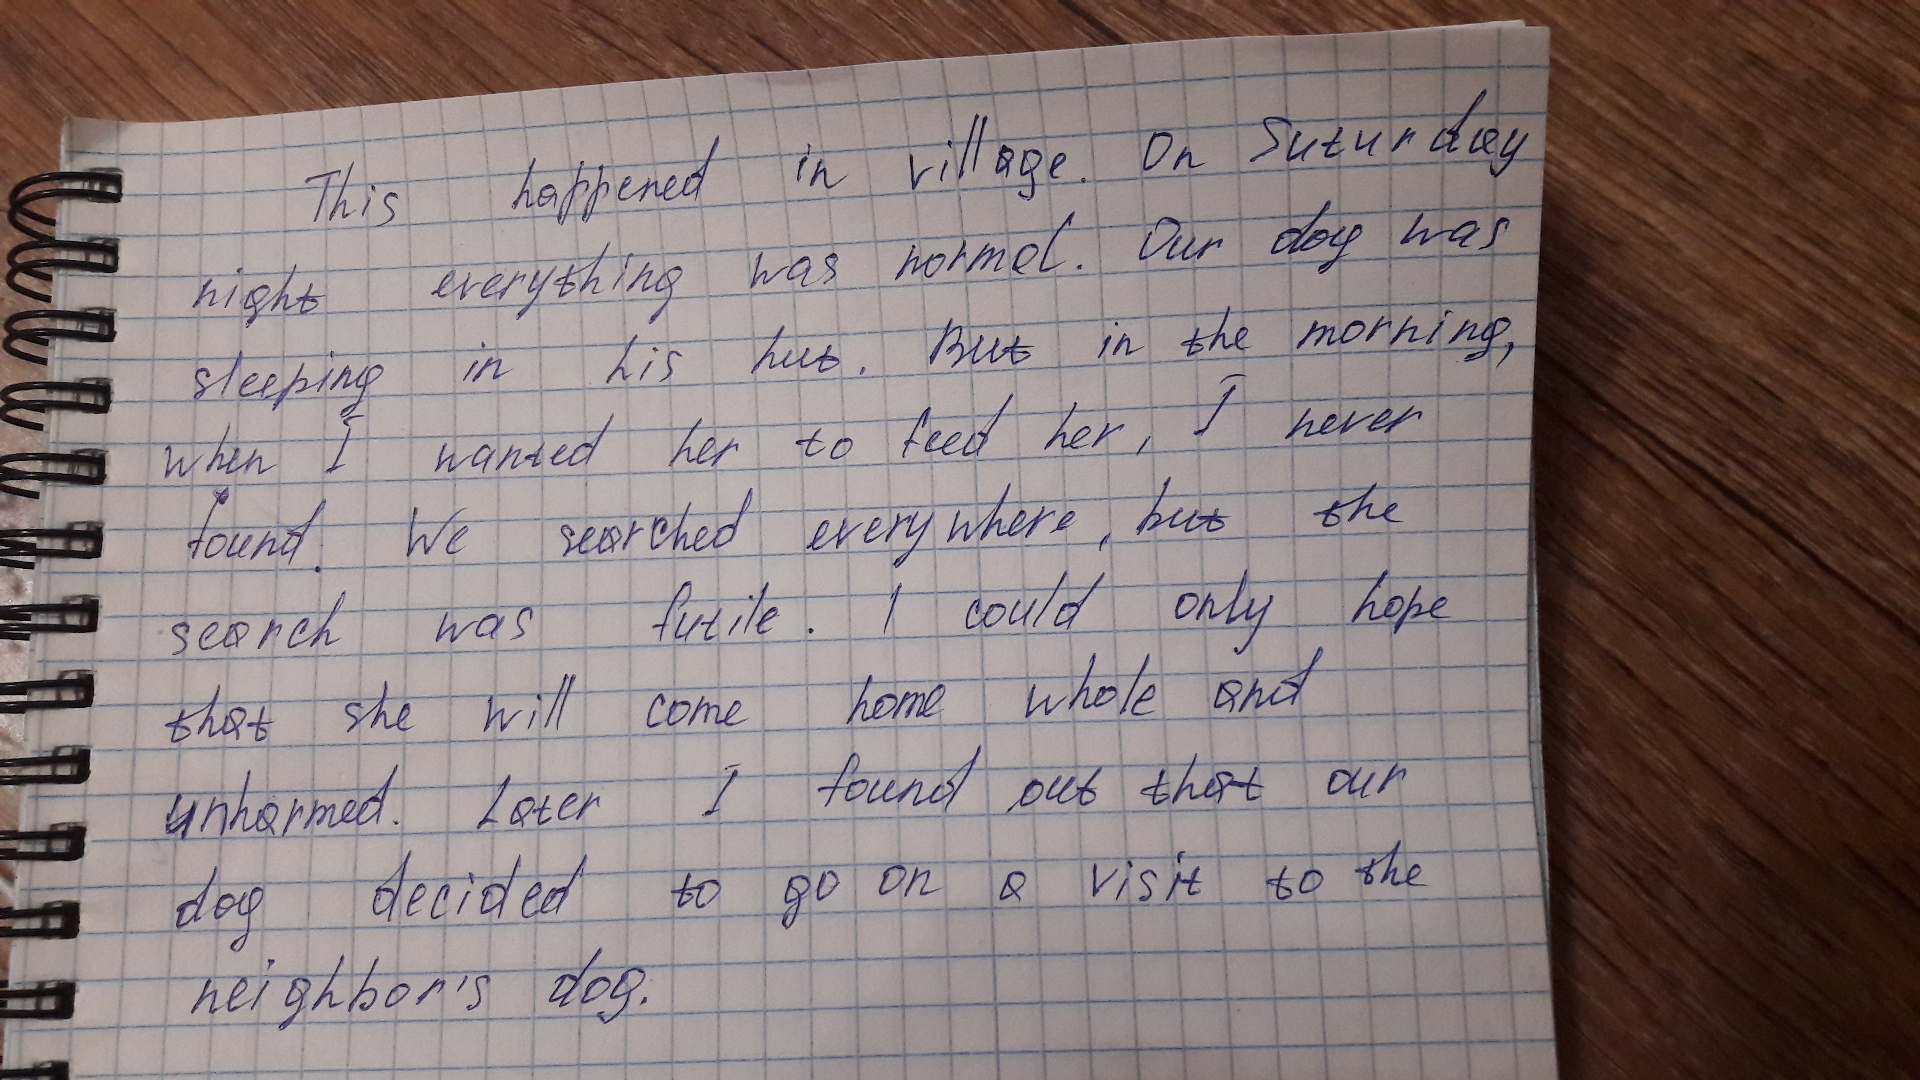 This happened in village. On Suturday
night everything was normal. Our dog was
sleeping in his hut. But in the morning,
when I wanted her to feed her, I never
found. We searched everywhere, but the
search was futile. I could only hope
that she will come home whole and
unharmed. Later I found out that our
dog decided to go on a visit to the
neighbor's dog.